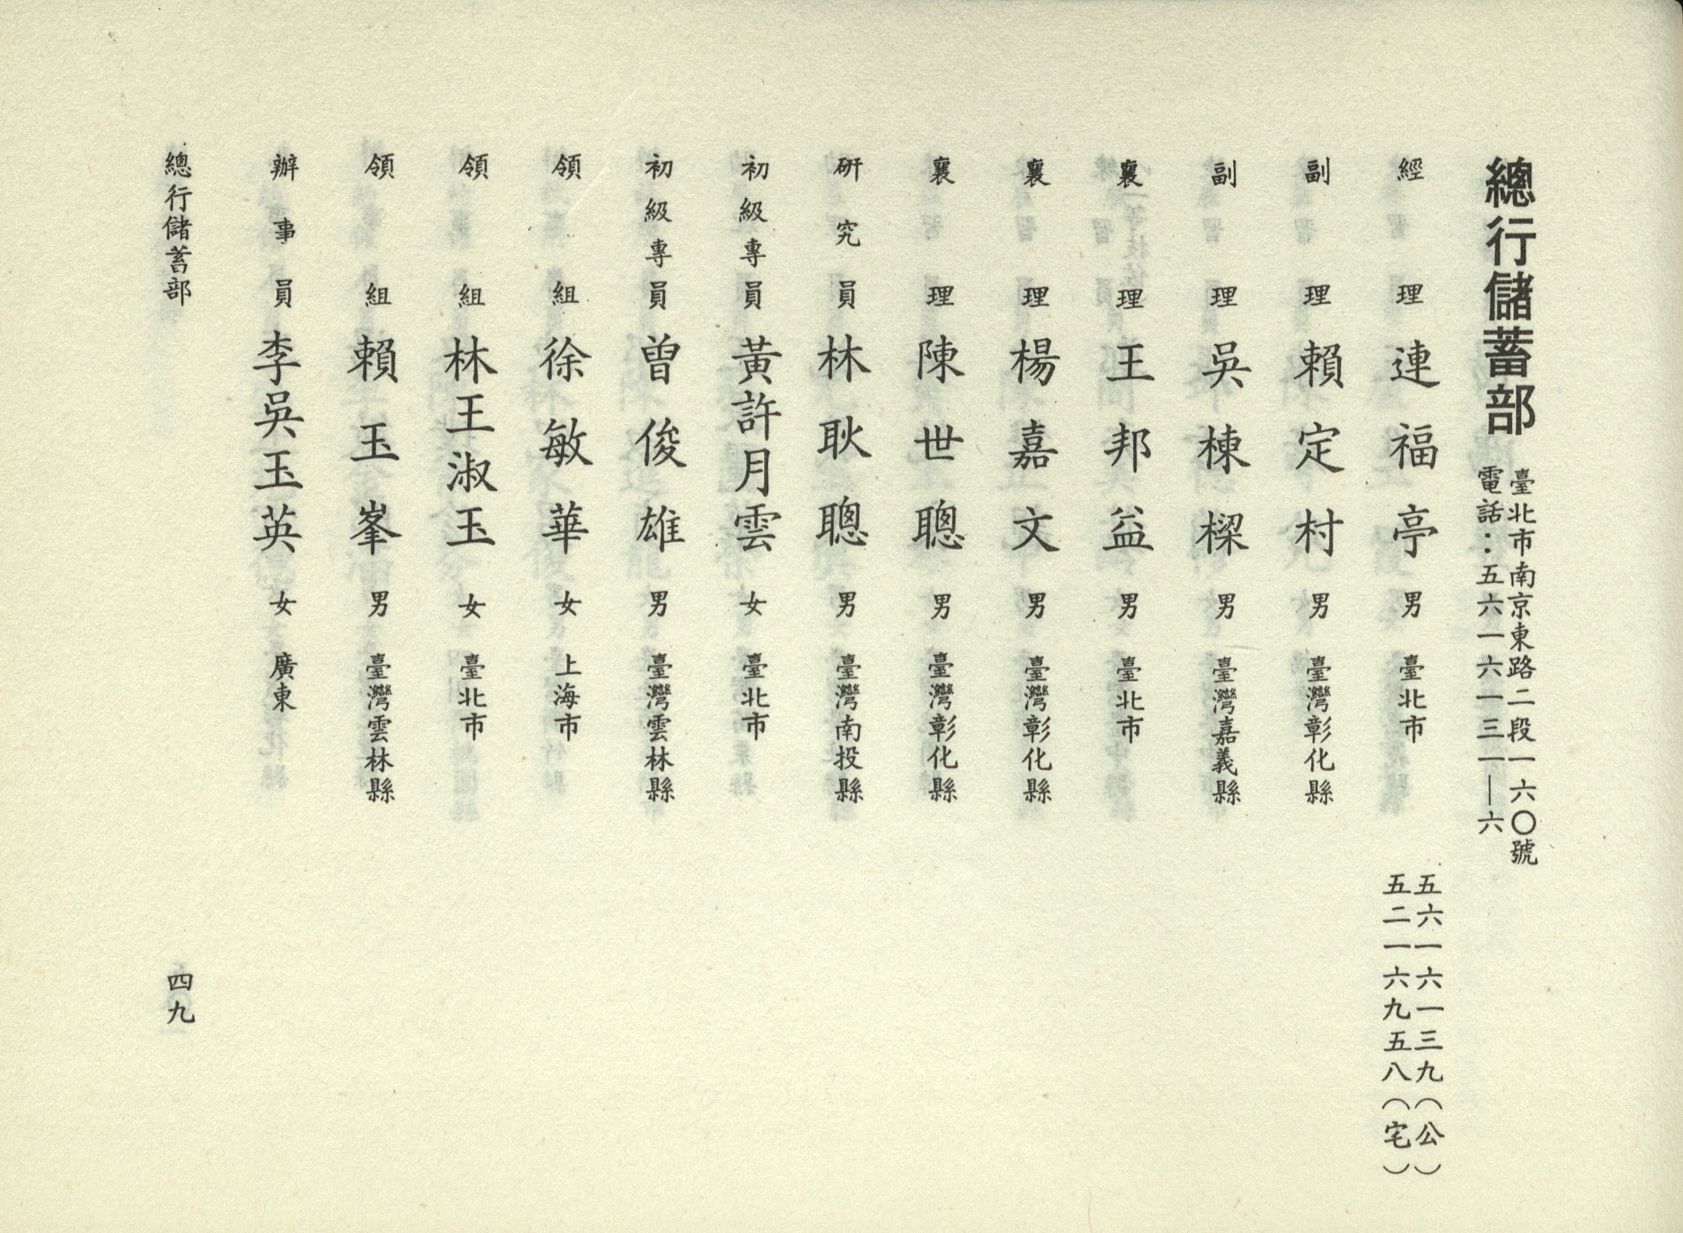 總行儲蓄部
臺北市南京東路二段一六〇號
電話：五六一六一三一—六
經理 連福亭 男 臺北市
五六一六一三九（公）
五二一六九五八（宅）
副理 賴定村 男 臺灣彰化縣
副理 吳棟樑 男 臺灣嘉義縣
襄理 王邦益 男 臺北市
襄理 楊嘉文 男 臺灣彰化縣
襄理 陳世聰 男 臺灣彰化縣
研究員 林耿聰 男 臺灣南投縣
初級專員 黃許月雲 女 臺北市
初級專員 曾俊雄 男 臺灣雲林縣
領組 徐敏華 女 上海市
領組 林王淑玉 女 臺北市
領組 賴玉峯 男 臺灣雲林縣
辦事員 李吳玉英 女 廣東
總行儲蓄部
四九